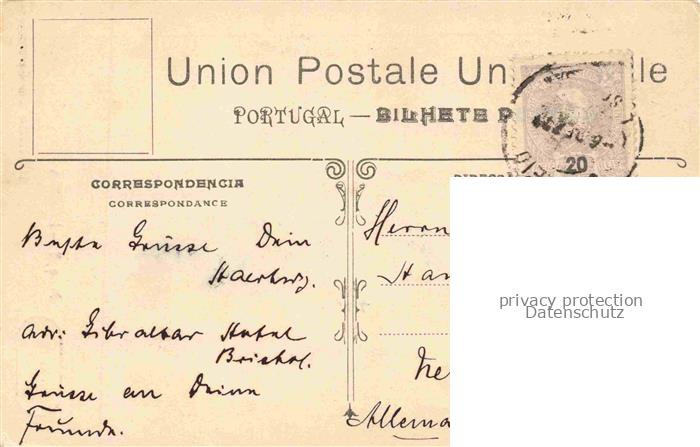 Union Postale Un lle
PORTUGAL — BILHETE P
20
CORRESPONDENCIA
CORRESPONDANCE
Beste Grüsse Dein
Haertwig.
adr: Gibraltar Hotel
Bristol.
Grüsse an Deine
Freunde.
Herrn
Han
Allema
privacy protection
Datenschutz